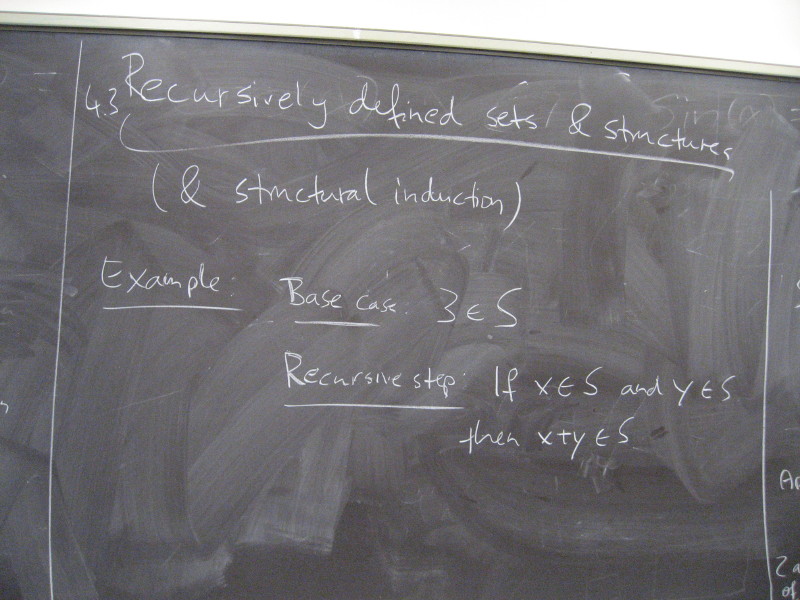 4.3 Recursively defined sets & structures
(& structural induction)
Example: Base case: 3 ∈ S
Recursive step: If x ∈ S and y ∈ S
then x+y ∈ S